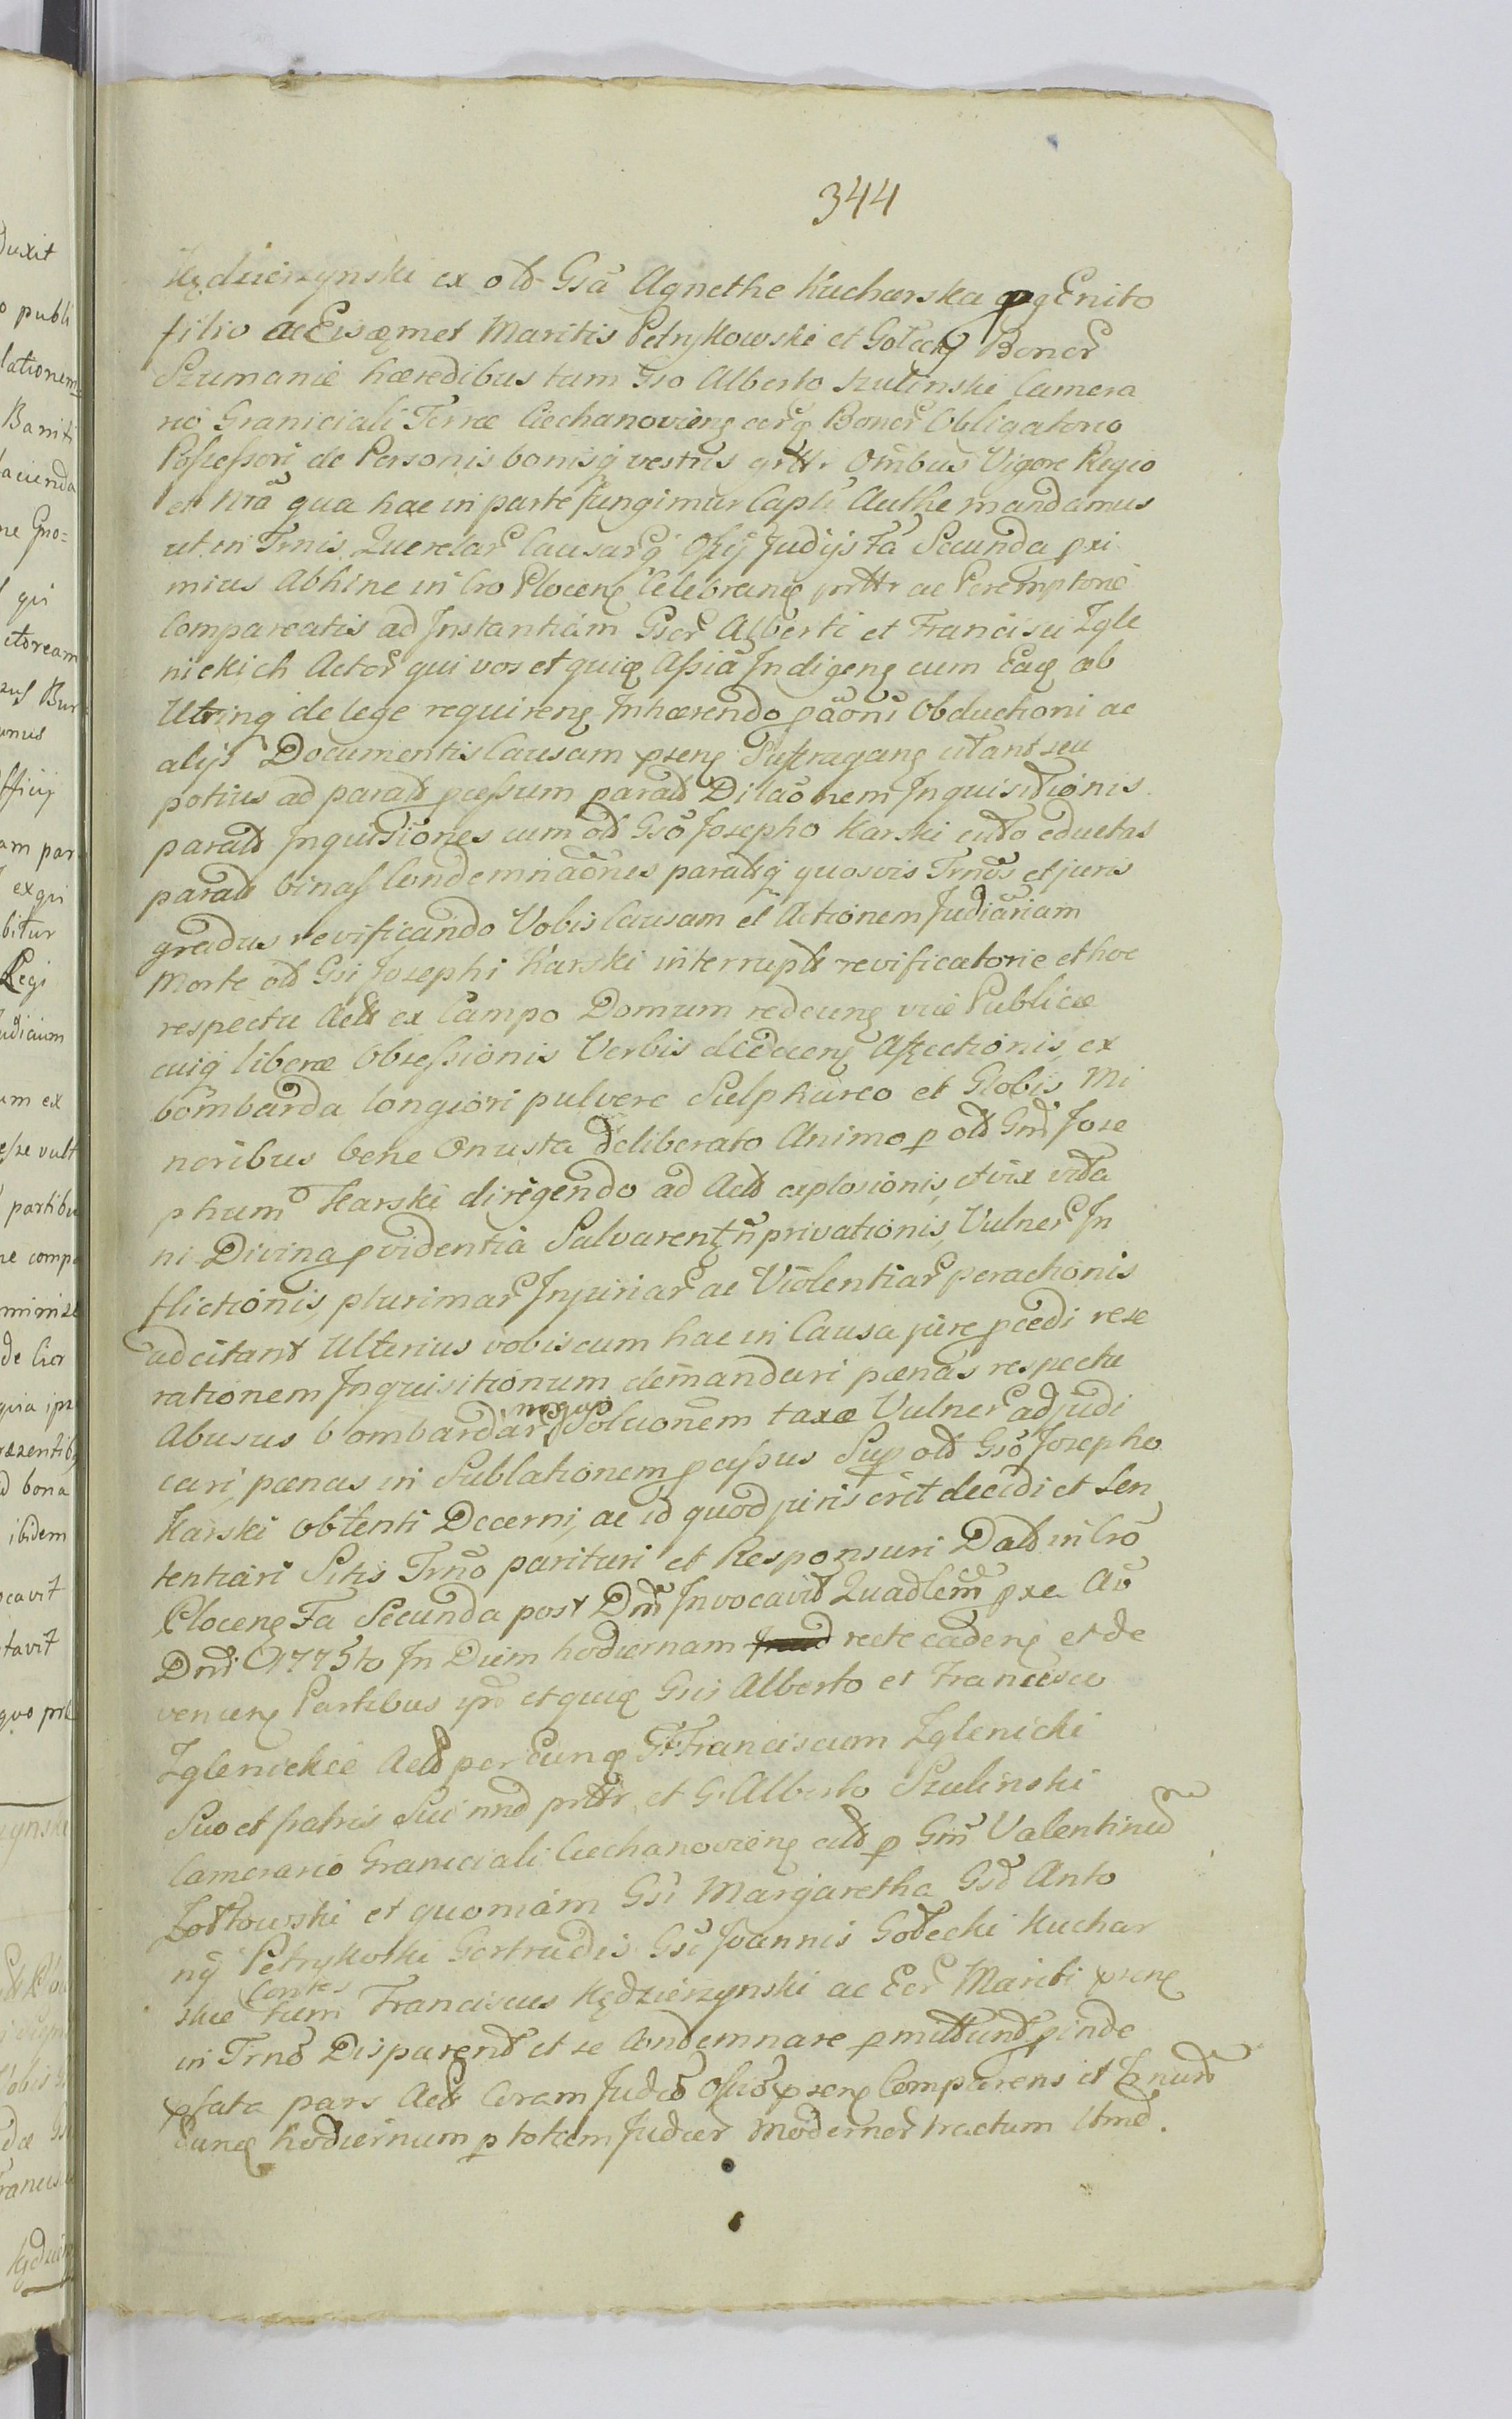 344
Kędzierzynski ex olđ Gsā Agnethe Kucharska pgEnito
filio ac Eisqmet Maritis Petrykowski et Gołecky Bonor
Szumanie hæredibus tum Gso Alberto Szulinski Camera
rio Graniciali Terræ Ciechanovienς eorq Bonor Obligatorio
Possessori de Personis bonisq vestris grttr Omībus Vigore Regio
et Nrā qua hac in parte fungimur Capli Authe mandamus
ut in Trnis Querelar Causarq Offij Judijs Fa Secunda pxi
mius abhinc in Cro Plocenς Celebranς prttr ac Peremptorie
Compareatis ad Instantiam Gsor Alberti et Francisci Zgle
nickich Actor qui vos et quiq Assiā Indigenς cum Eaς ab
Utrinq de lege requirenς Inhærendo pāoni Obduchoni ac
alijs Documentis Causam psenς Suffraganς citant seu
potius ad paratđ pcessum paratđ Dilaōnem Inquisitionis
paratđ Inquisitiones cum olđ Gsō Josepho Karski citđo eductas
paratđ binas Condemnāones paratđq quosvis Trnōs et juris
gradus revificando Vobis Causam et Actionem Judiāriam
Morte olđ Gsi Josephi Karski interruptđ revificatorie et hoc
respectu Actđ ex Campo Domum redeunς viæ Publicæ
cuiq liberæ Obsessionis Verbis dedecenς Affectionis, ex
bombarda longiori pulvere Sulphureo et Globis Mi
noribus bene Onusta deliberato Animo p olđ Gnđ Jose
phum Karski dirigendo ad Actđ explosionis, et vix vita
ni Divina pvidentia Salvarenς privationis, Vulner In
flictionis, plurimar Injuriar ac Violentiar perachonis
adcitant Ulterius vobiscum hac in Causa jure pcedi rese
rationem Inquisitionum demandari pœnas respectu
Abusus bombardar Solutionem taxæ Vulner adjudi
cari pœnas in Sublationem pcessus Sup olđ Gsō Josepho
Karski obtenti Decerni, ac id quod juris erit decidi et Sen
tentiari Sitis Trno parituri et Responsuri Datđ in Cro
Plocenς Fa Secunda post Dmn Invocavit Quadlem pxa Aō
Dni 1775to In Diem hodiernam recte cadenς et de
venienς Partibus ipsō et quiq Gsis Alberto et Francisco
Zglenickie Actđ per Eunq G Franciscum Zglenicki
Suo et fratris Sui nnđ prttr et G. Alberto Szulinski
Camerario Graniciali Ciechanovienς citđ p Gnm Valentinuđ
Zołtowski et quoniam Gsi Margaretha Gsđ Anto
nij Petrykoski Gertrudis Gsi Joannis Gołecki Kuchar
skie Contes tum Franciscus Kędzierzynski ac Eor Mariti psenς
in Trno Disparenđ et se Condemnare pmittunđ pinde
pfata pars Actđ Coram Judō Offō psenς Comparens et Trnum
Eunς hodiernum p totum Judior modernor tractum Attnđ.